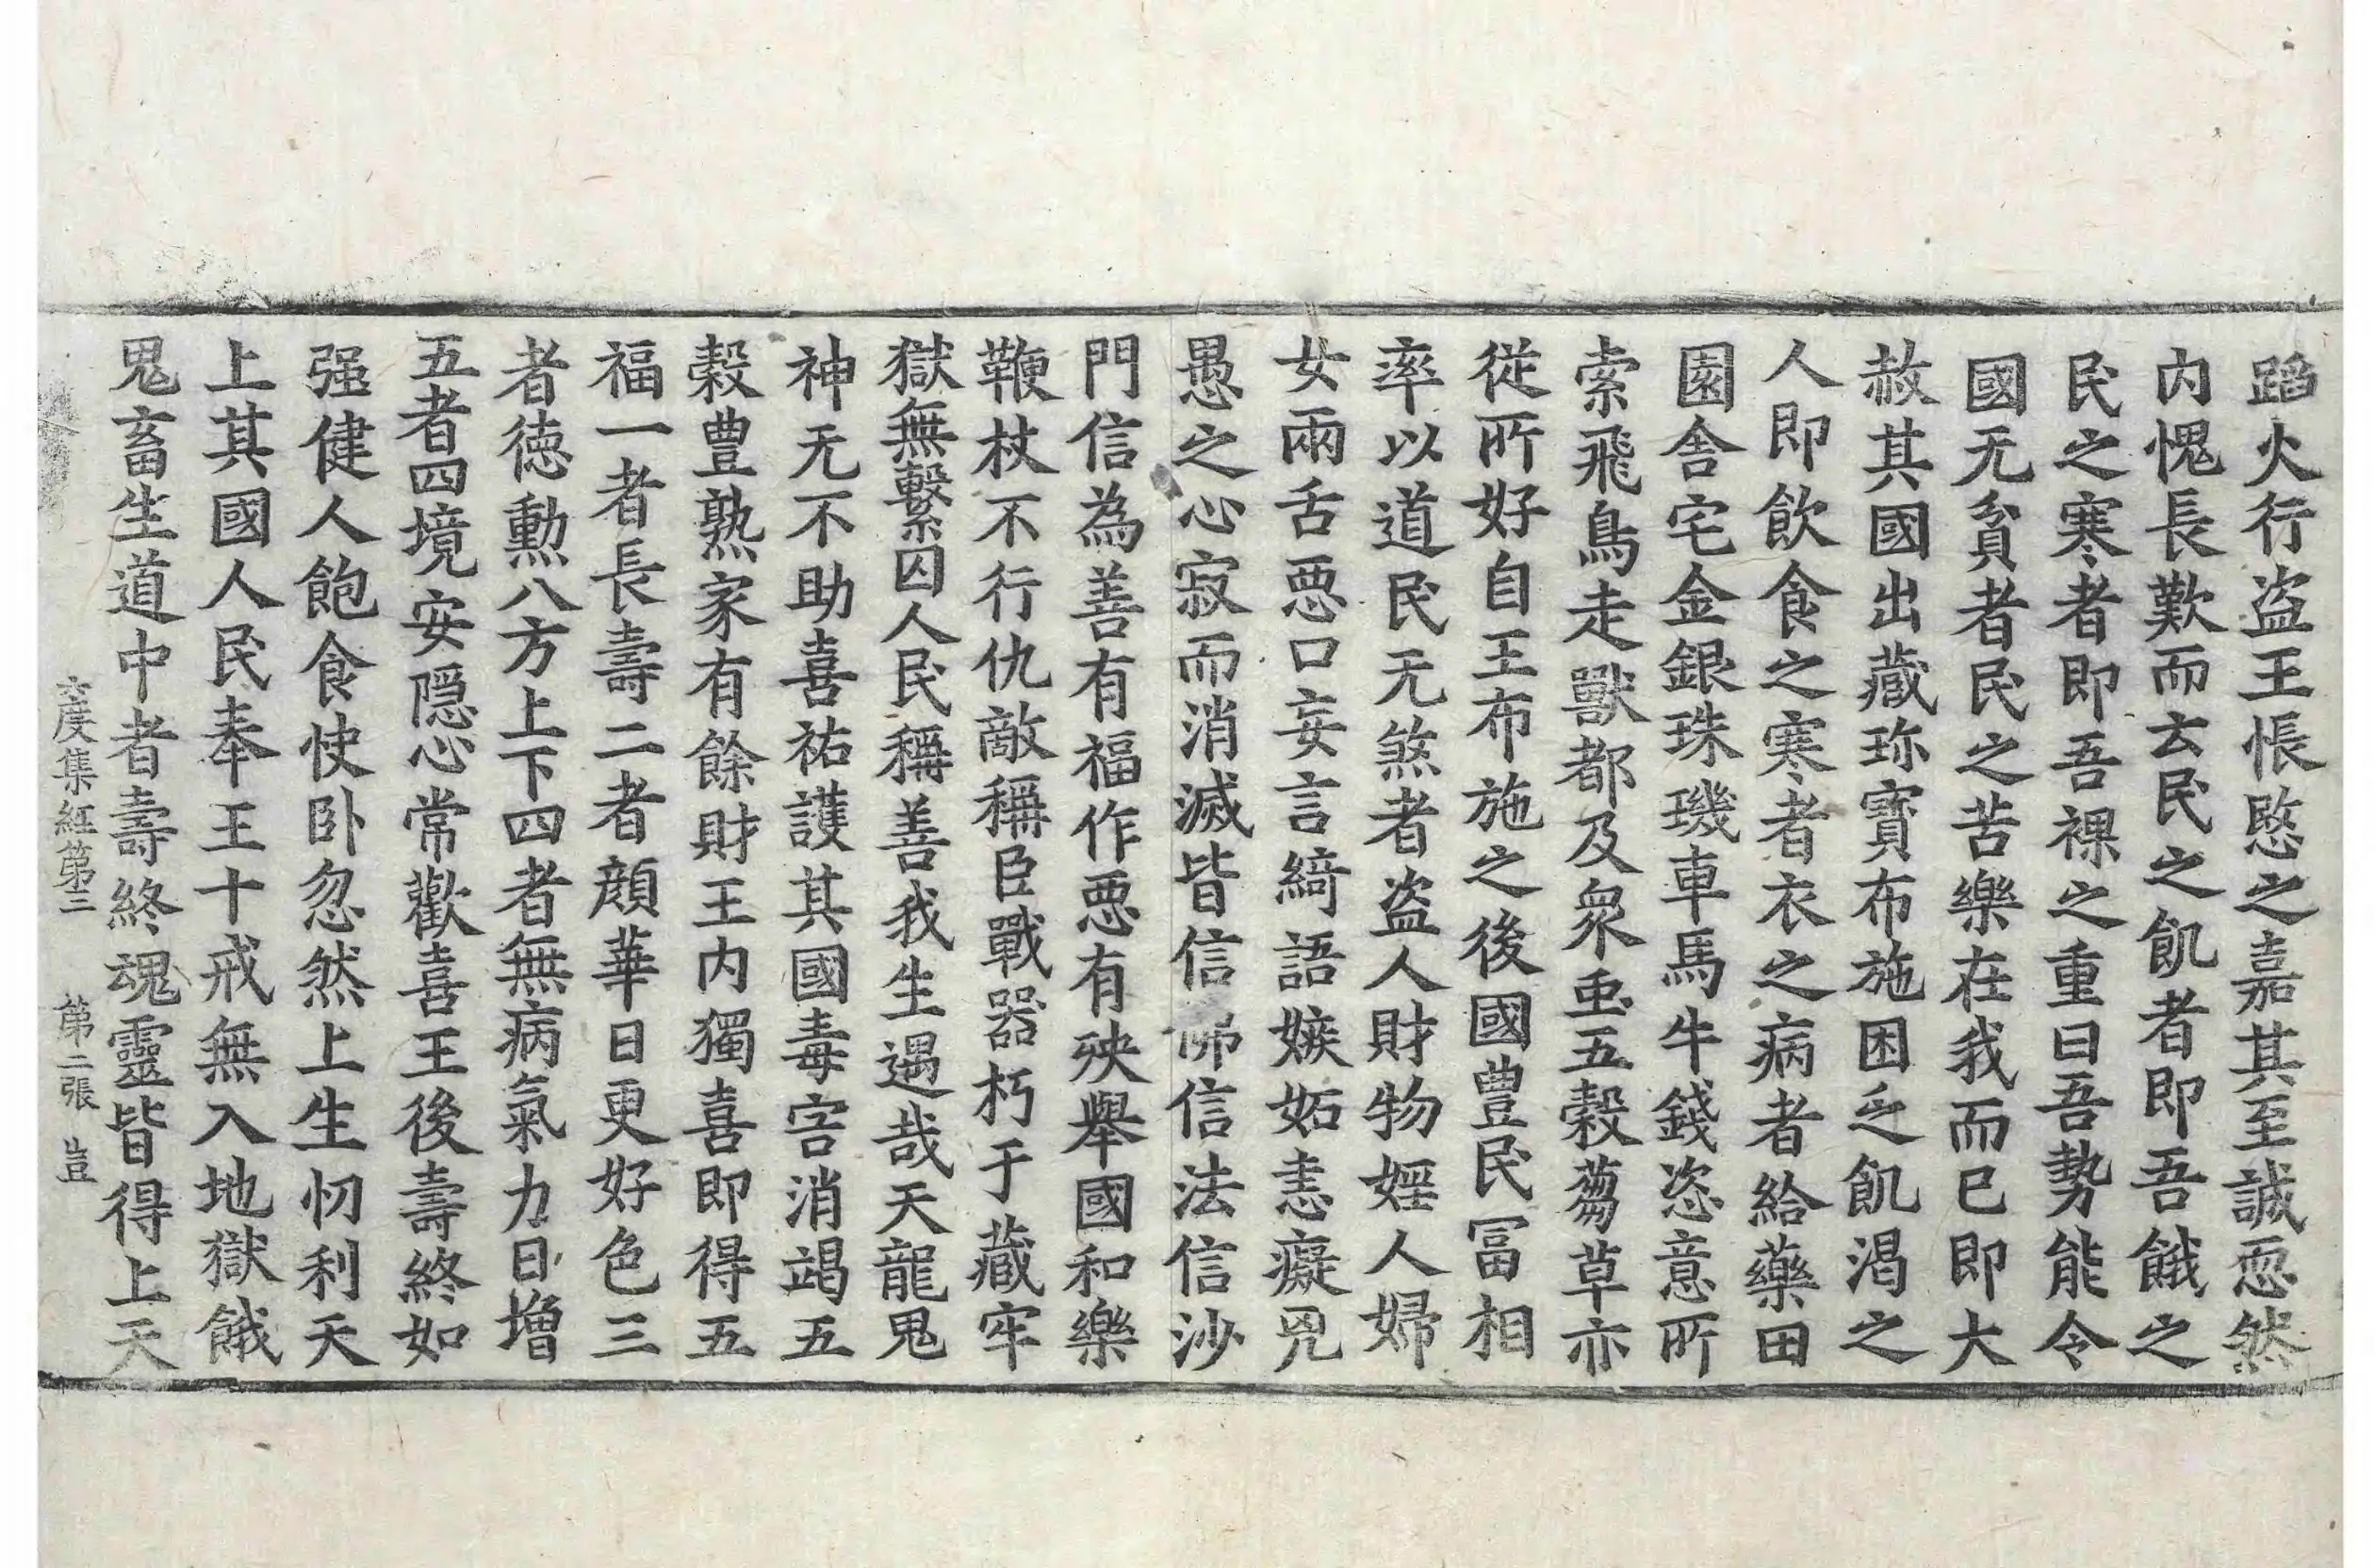 蹈火行盗王悵愍之嘉其至誠恧然
内愧長歎而云民之飢者即吾餓之
民之寒者即吾裸之重曰吾勢能令
國无貧者民之苦樂在我而已即大
赦其國出藏珎寶布施困乏飢渴之
人即飲食之寒者衣之病者給藥田
園舎宅金銀珠璣車馬牛錢恣意所
索飛鳥走獸都及衆䖝五穀蒭草亦
從所好自王布施之後國豊民冨相
率以道民无煞者盗人財物婬人婦
女兩舌惡口妄言綺語嫉妬恚癡兇
愚之心寂而消滅皆信佛信法信沙
門信為善有福作惡有殃舉國和樂
鞭杖不行仇敵稱臣戰器朽于藏牢
獄無繫囚人民稱善我生遇哉天龍鬼
神无不助喜祐護其國毒害消竭五
穀豊熟家有餘財王内獨喜即得五
福一者長壽二者顔華日更好色三
者徳勲八方上下四者無病氣力日增
五者四境安隱心常歡喜王後壽終如
强健人飽食快卧忽然上生忉利天
上其國人民奉王十戒無入地獄餓
鬼畜生道中者壽終魂靈皆得上天
六度集経第三　第二張　豈